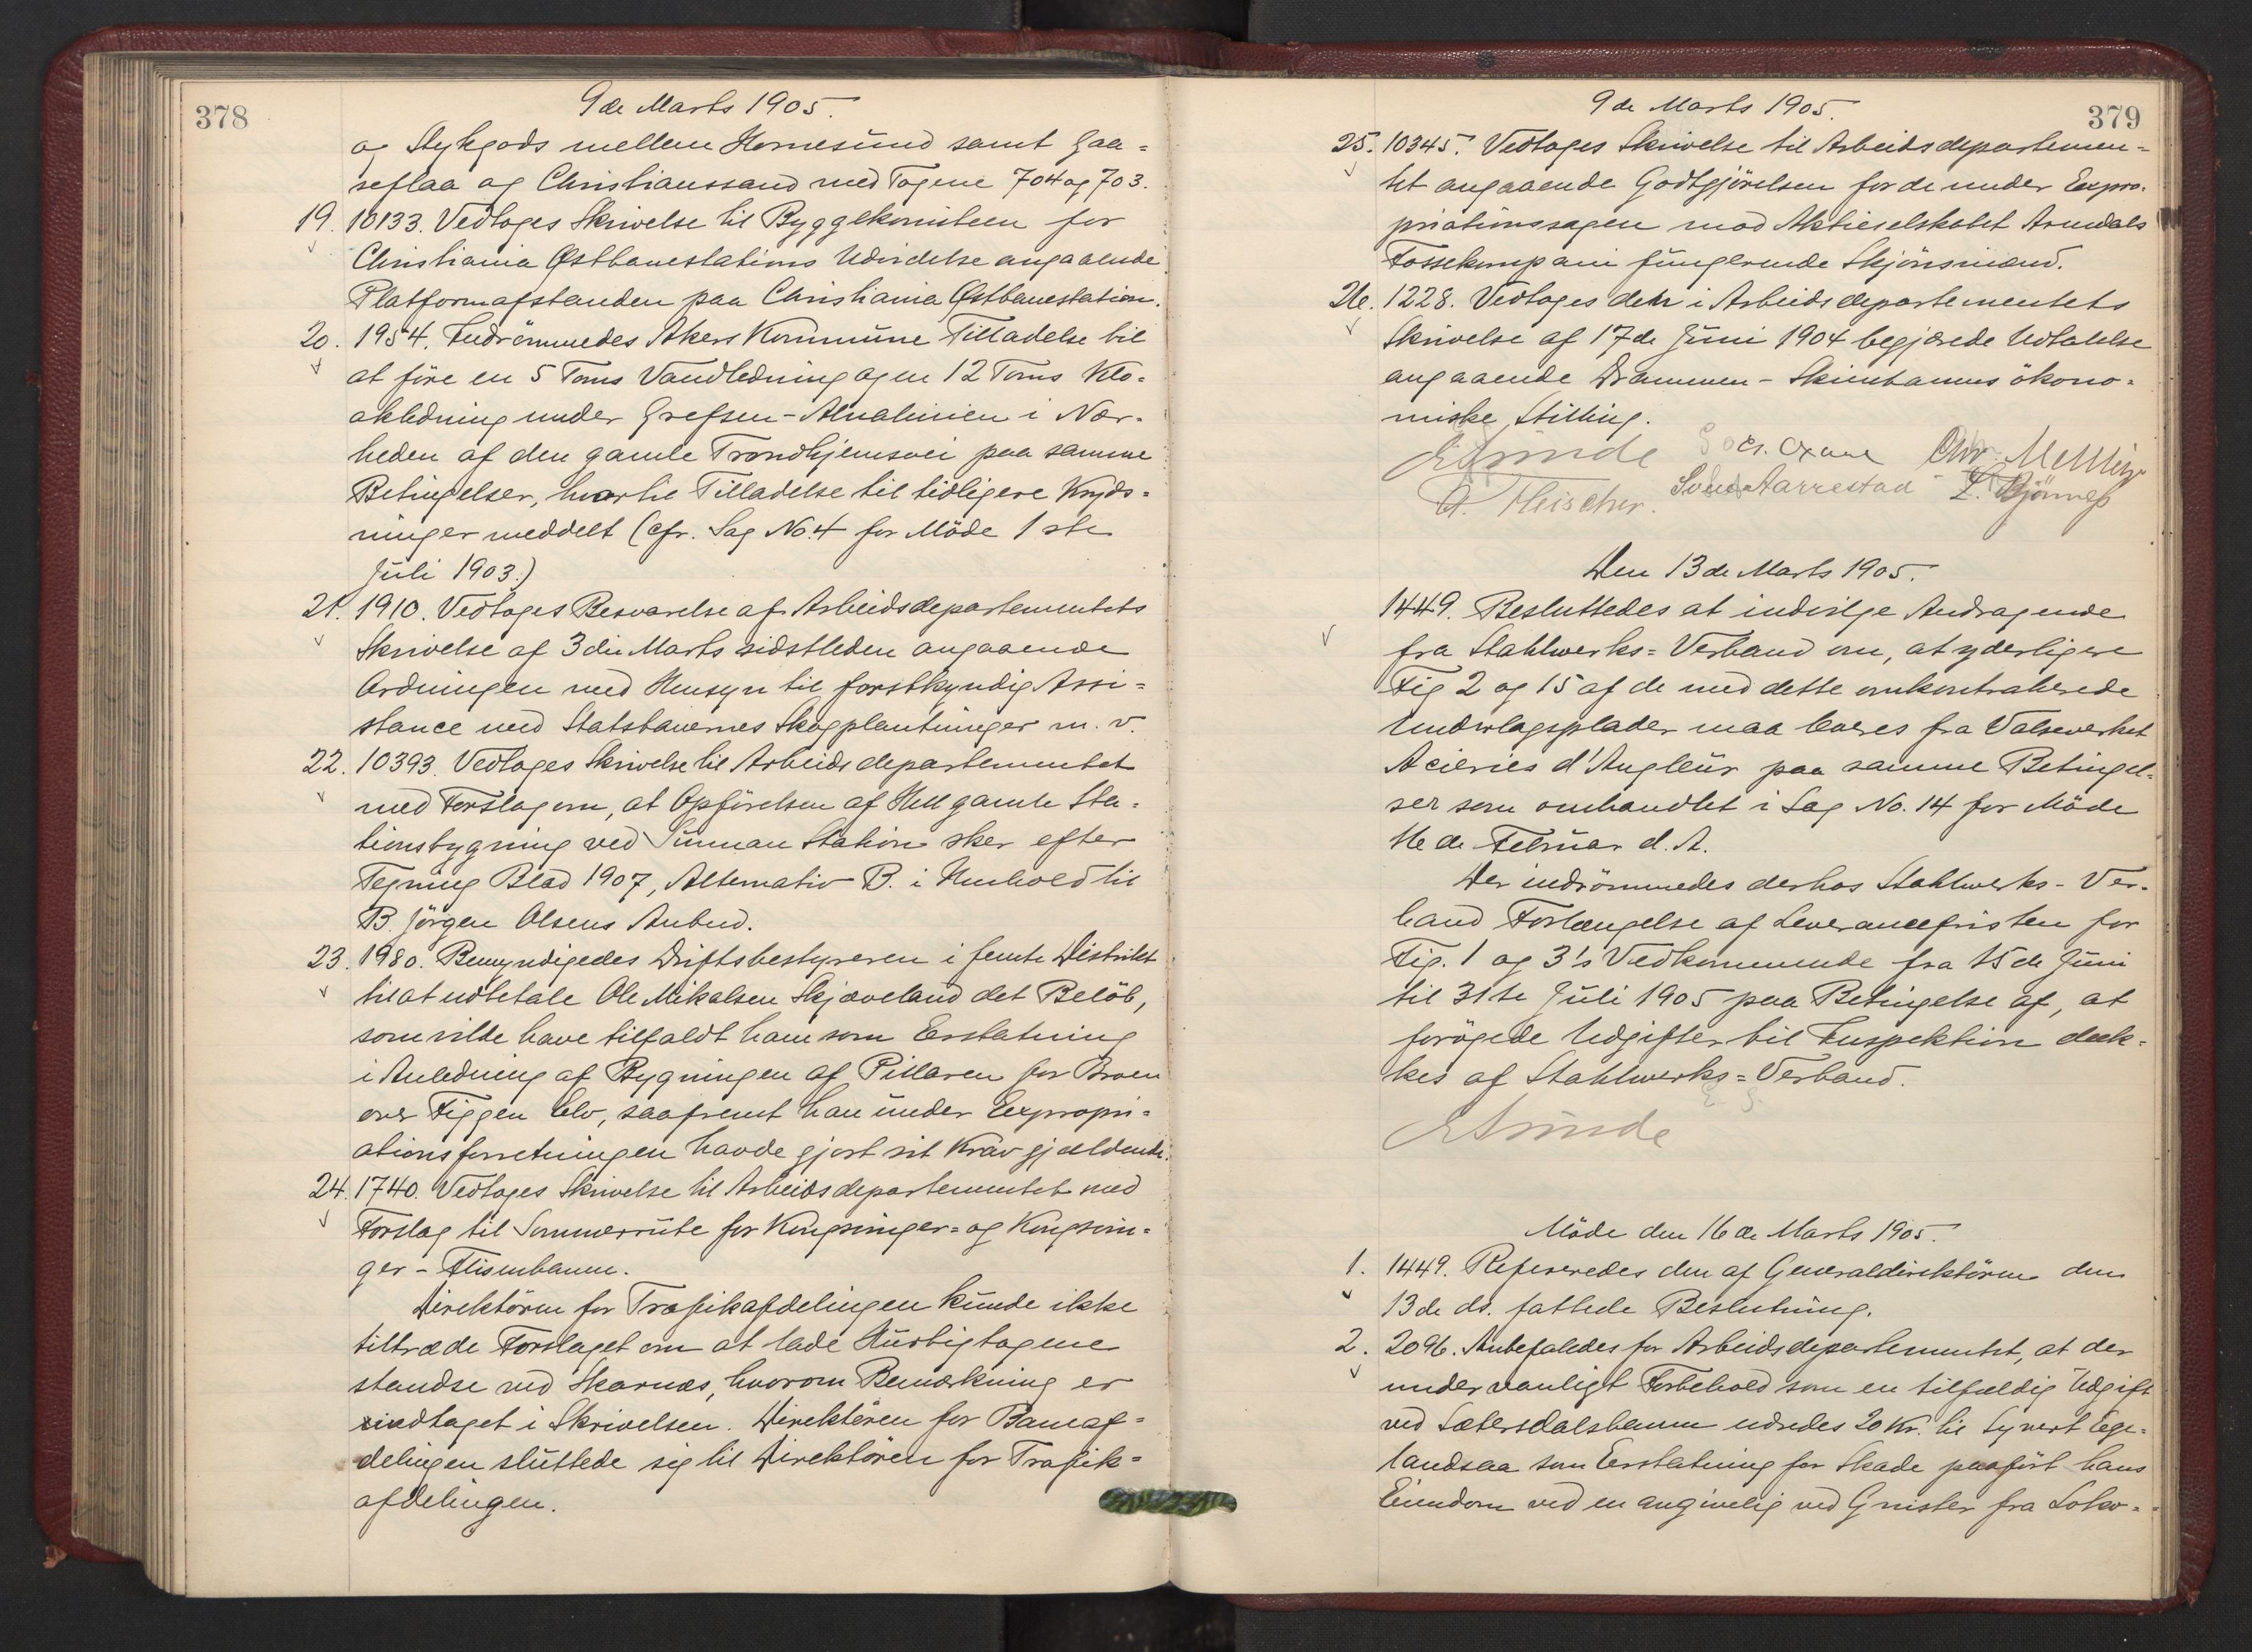 378
9de Marts 1905.
og Stykgods mellem Hornesund samt Gaa=
seflaa og Christianssand med Togene 704 og 703.
19. 10133. Vedtoges Skrivelse til Byggekomiteen for
Christiania Østbanestations Udvidelse angaaende
Platformafstanden paa Christiania Østbanestation.
20. 1954. Indrömmedes Akers Kommune Tilladelse til
at före en 5 Toms Vandledning og en 12 Toms Klo=
akledning under Grefsen-Alnalinien i Nær=
heden af den gamle Trondhjemsvei paa samme
Betingelser, hvortil Tilladelse til tidligere Kryds=
ninger meddelt (cfr. Sag No. 4 for Möde 1ste
Juli 1903.)
21. 1910. Vedtoges Besvarelse af Arbeidsdepartementets
Skrivelse af 3die Marts sidstleden angaaende
Ordningen med Hensyn til forstkyndig Assi=
stance med Statsbanernes Skogplantninger m. v.
22. 10393. Vedtoges Skrivelse til Arbeidsdepartementet
med Forslag om, at Opförelsen af Hell gamle Sta=
tionsbygning ved Sunnan Station sker efter
Tegning Blad 1907, Alternativ B. i Henhold til
B. Jörgen Olsens Anbud.
23. 1980. Bemyndigedes Driftsbestyreren i femte Distrikt
til at udbetale Ole Mikalsen Skjæveland det Belöb,
som vilde have tilfaldt ham som Erstatning
i Anledning af Bygningen af Pillaren for Broen
over Figgen Elv, saafremt han under Expropri=
ationsforretningen havde gjort sit Krav gjældende.
24. 1740. Vedtoges Skrivelse til Arbeidsdepartementet med
Forslag til Sommerrute for Kongsvinger= og Kongsvin=
ger - Flisenbanen.
Direktören for Trafikafdelingen kunde ikke
tiltræde Forslaget om at lade Hurtigtogene
standse ved Skarnæs, hvorom Bemærkning er
indtaget i Skrivelsen. Direktören for Baneaf=
delingen sluttede sig til Direktören for Trafik=
afdelingen.
9de Marts 1905.
379
25. 10345. Vedtoges Skrivelse til Arbeidsdepartemen=
tet angaaende Godtgjörelsen for de under Expro=
priationssagen mod Aktieselskabet Arendals
Fossekompani fungerende Skjönsmænd.
26. 1228. Vedtoges den i Arbeidsdepartementets
Skrivelse af 17de Juni 1904 begjærede Udtalelse
angaaende Drammen - Skienbanens ökono=
miske Stilling.
ESunde Chr. Mellbye
A. Fleischer. Sven Aarrestad
Den 13de Marts 1905.
1449. Besluttedes at indvilge Andragende
fra Stahlwerks=Verband om, at yderligere
Fig 2 og 15 af de med dette omkontraherede
Underlagsplader maa leveres fra Valseverket
Acieries d'Angleur paa samme Betingel=
ser som omhandlet i Sag No. 14 for Möde
16de Februar d. A.
Der indrömmedes derhos Stahlwerks-Ver=
band Forlængelse af Leverancefristen for
Fig. 1 og 3's Vedkommende fra 15de Juni
til 31te Juli 1905 paa Betingelse af, at
forögede Udgifter til Inspektion dæk=
kes af Stahlwerks=Verband.
ESunde
Möde den 16de Marts 1905.
1. 1449. Refereredes den af Generaldirektören den
13de ds. fattede Beslutning.
2. 2096. Anbefaledes for Arbeidsdepartementet, at der
under vanligt Forbehold som en tilfældig Udgift
ved Sætersdalsbanen udredes 20 Kr. til Syvert Ege=
landsaa som Erstatning for Skade paafört hans
Eiendom ved en angivelig ved Gnister fra Loko=